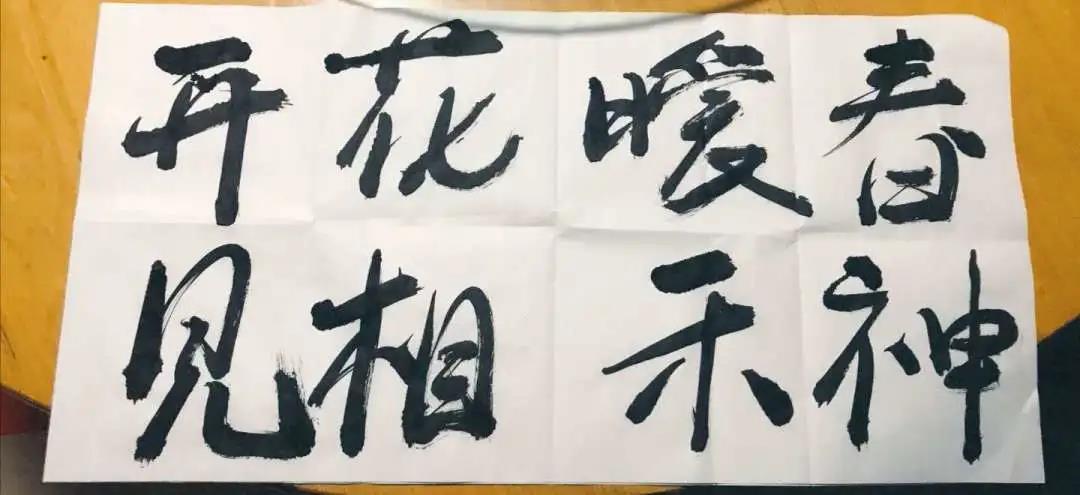 春暖花开
神示相见